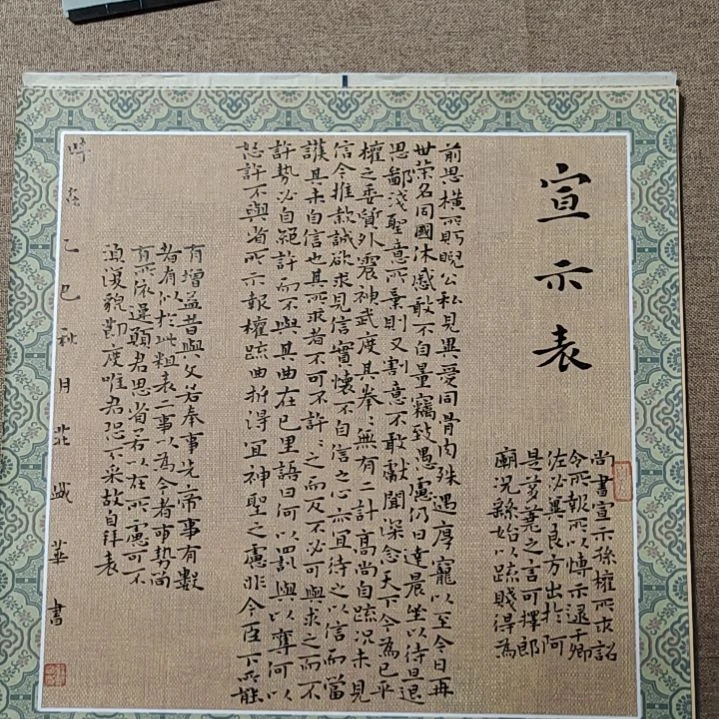 宣示表
尚書宣示孫權所求詔
令所報所以博示逮于卿
佐必冀良方出於阿
是芻蕘之言可擇郎
廟況繇始以疏賤得為
前恩橫所眄睨公私見異愛同骨肉殊遇厚寵以至今日再
世榮名同國休慼敢不自量竊致愚慮仍日達晨坐以待旦退
思鄙淺聖意所棄則又割意不敢獻聞深念天下今為已平
權之委質外震神武度其拳:無有二計高尚自疏況未見
信今推款誠欲求見信實懷不自信之心亦宜待之以信而當
護其未自信也其所求者不可不許:之而反不必可與求之而不
許勢必自絕許而不與其曲在己里語曰何以罰與以奪何以
怒許不與省所示報權疏曲折得宜神聖之慮非今臣下所能
有增益昔與文若奉事先帝事有數
者有似於此粗表二事以為今者事勢尚
有所依違願君思省若以在所慮可不
須復貌節度唯君恐不采故自拜表
時在乙巳秋月莊華書